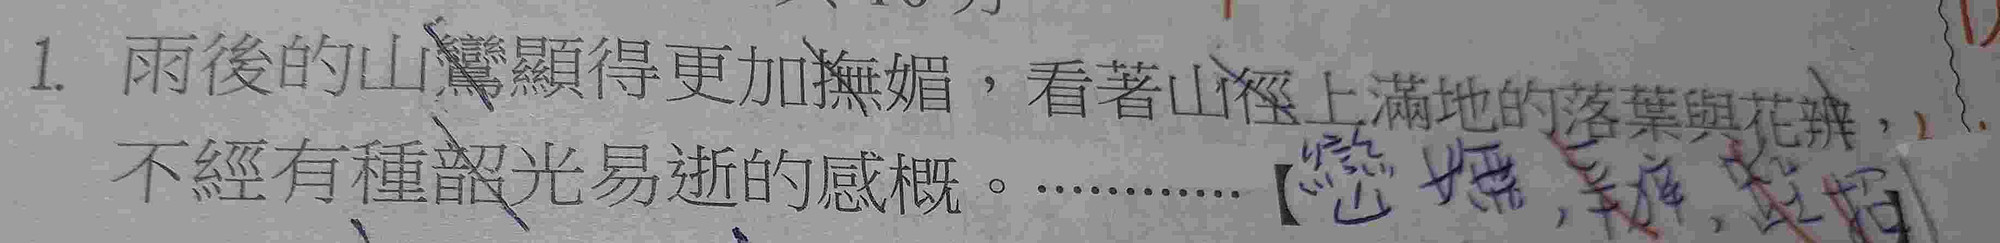 1. 雨後的山鸞顯得更加撫媚,看著山徑上滿地的落葉與花辨,
不經有種韶光易逝的感概。…………【巒 嫵,